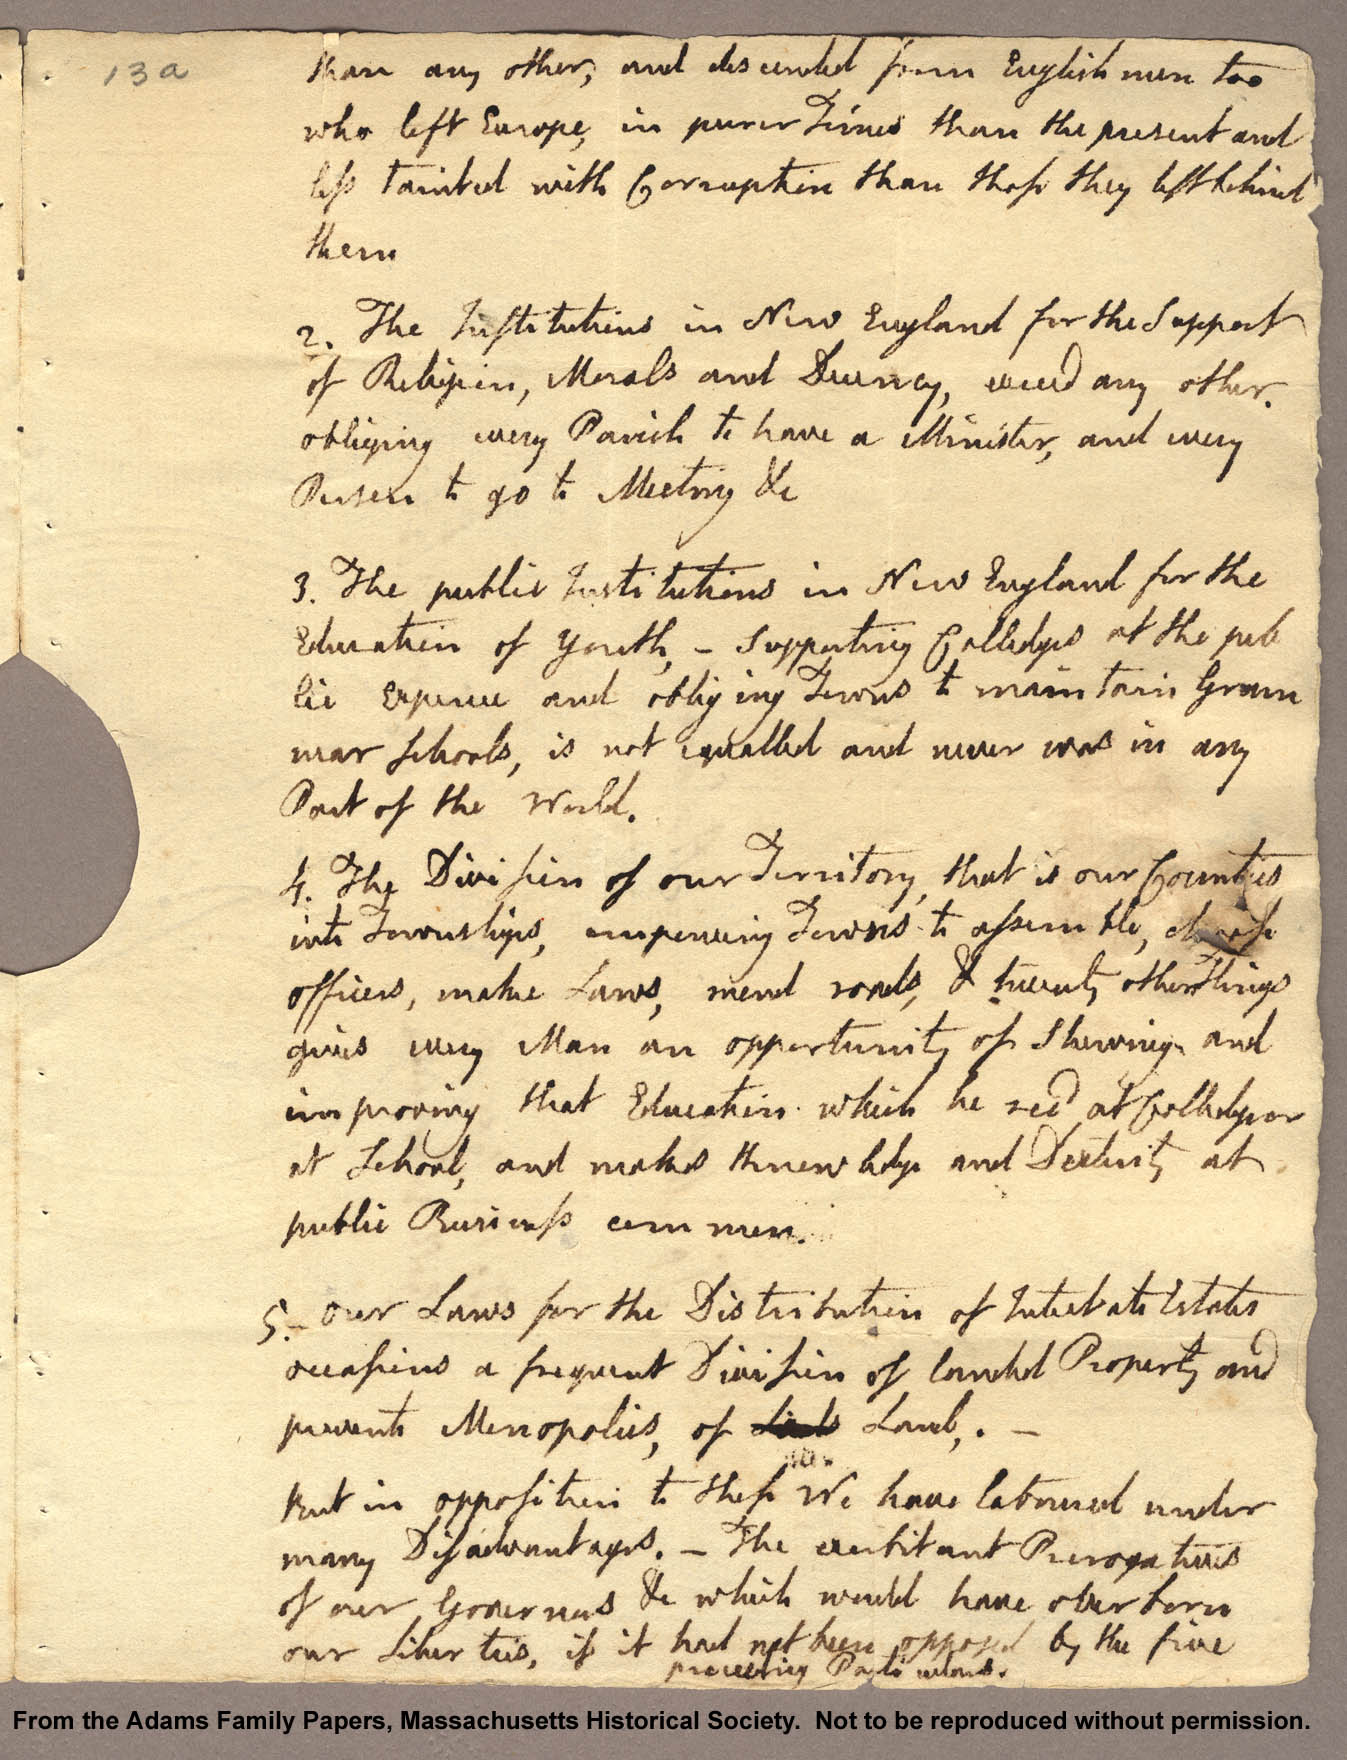 13a
than any other, and descended from English men too
who left Europe, in purer Times than the present and
less tainted with Corruption than those they left behind
them
2. The Institutions in New England for the Support
of Religion, Morals and Decency, exceed any other,
obliging every Parish to have a Minister, and every
Person to go to Meeting &c
3. The public Institutions in New England for the
Education of Youth, — supporting Colledges at the pub
lic Expence and obliging Towns to maintain Gram
mar schools, is not equalled and never was in any
Part of the World.
4. The Division of our Territory, that is our Counties
into Townships, empowering Towns to assemble, choose
officers, make Laws, mend roads, & twenty other Things
gives every Man an opportunity of shewing and
improving that Education which he recd at Colledge or
at School, and makes Knowledge and Dexterity at
public Business common.
5. — our Laws for the Distribution of Intestate Estates
occasions a frequent Division of landed Property and
prevents Monopolies, of Land,. —
But in opposition to these We have laboured under
many Disadvantages. — The exorbitant Prerogatives
of our Governors &c which would have overborn
our Liberties, if it had not been opposed by the five
preceeding Particulars.
From the Adams Family Papers, Massachusetts Historical Society. Not to be reproduced without permission.